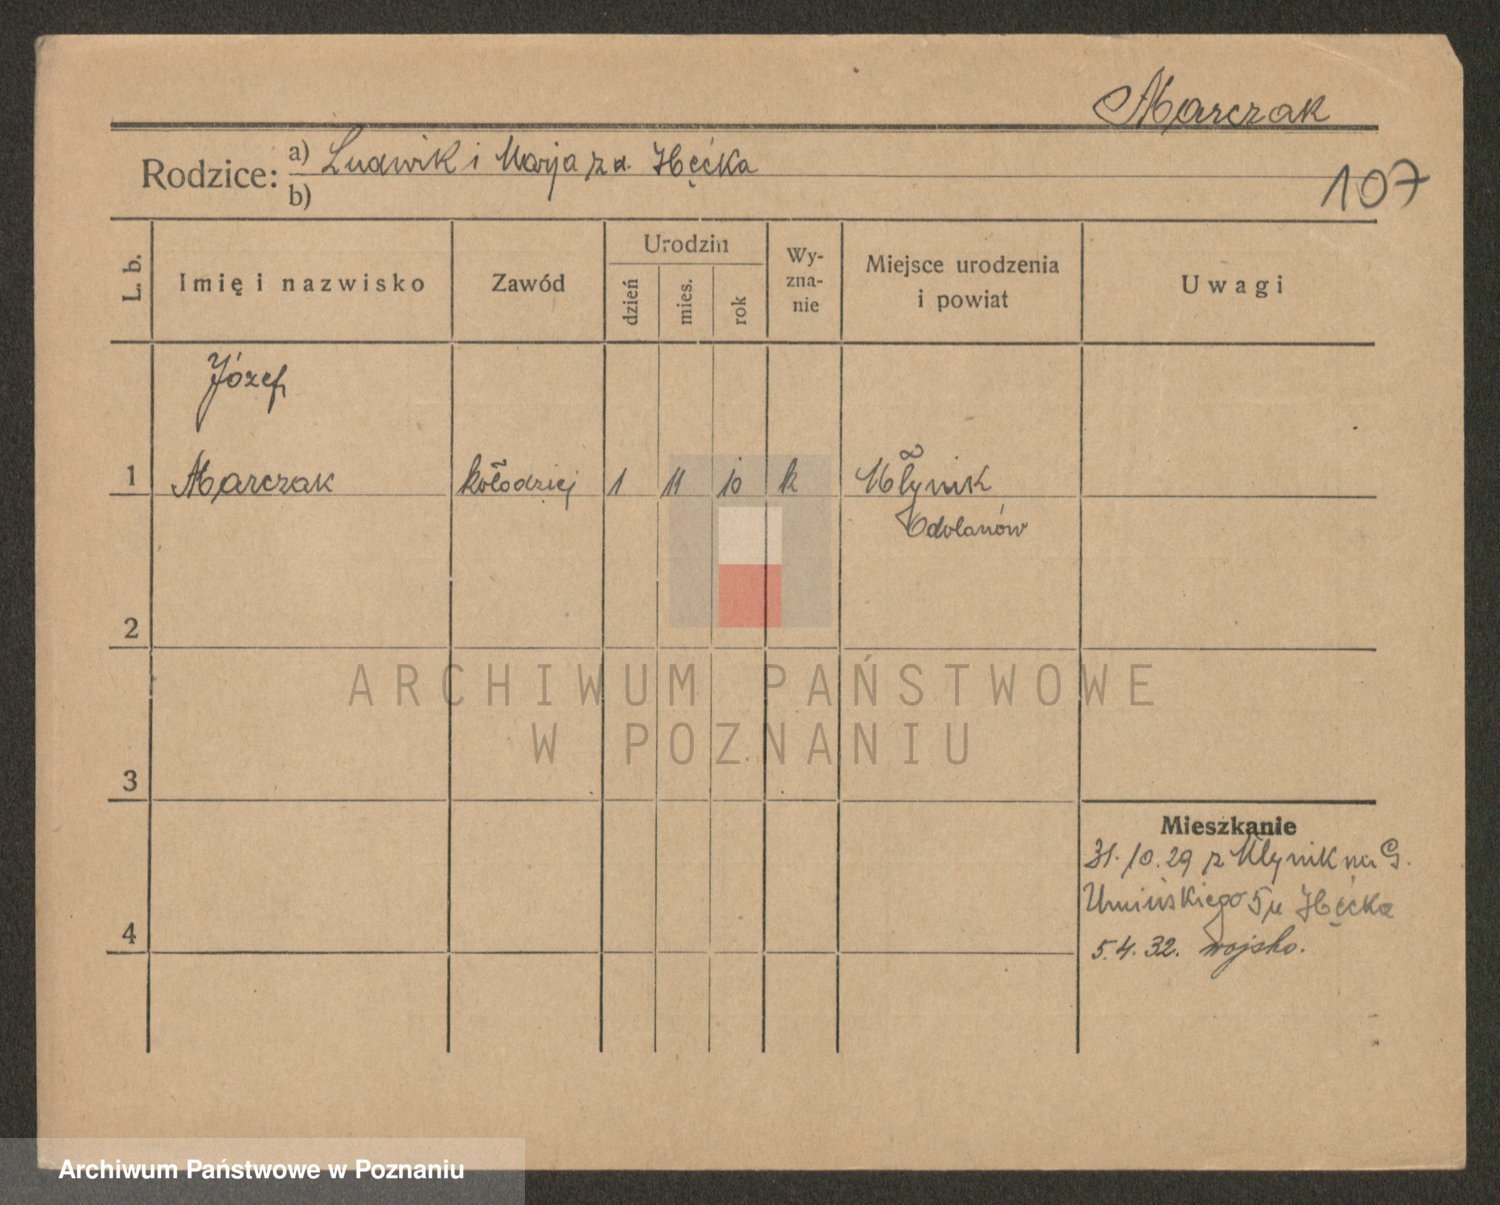 Marczak
Rodzice: a) Ludwik i Marja z d. Hęćka
b)
107
L. b.
Imię i nazwisko
Zawód
Urodzin
dzień
mies.
rok
Wy-
zna-
nie
Miejsce urodzenia
i powiat
Uwagi
Józef
1 Marczak kołodziej 1 11 10 k Młynik
Odolanów
2
3
4
Mieszkanie
31.10.29 z Młynik na G.
Umińskiego 5 u Hęćka
5.4.32. wojsko.
ARCHIWUM PAŃSTWOWE
W POZNANIU
Archiwum Państwowe w Poznaniu